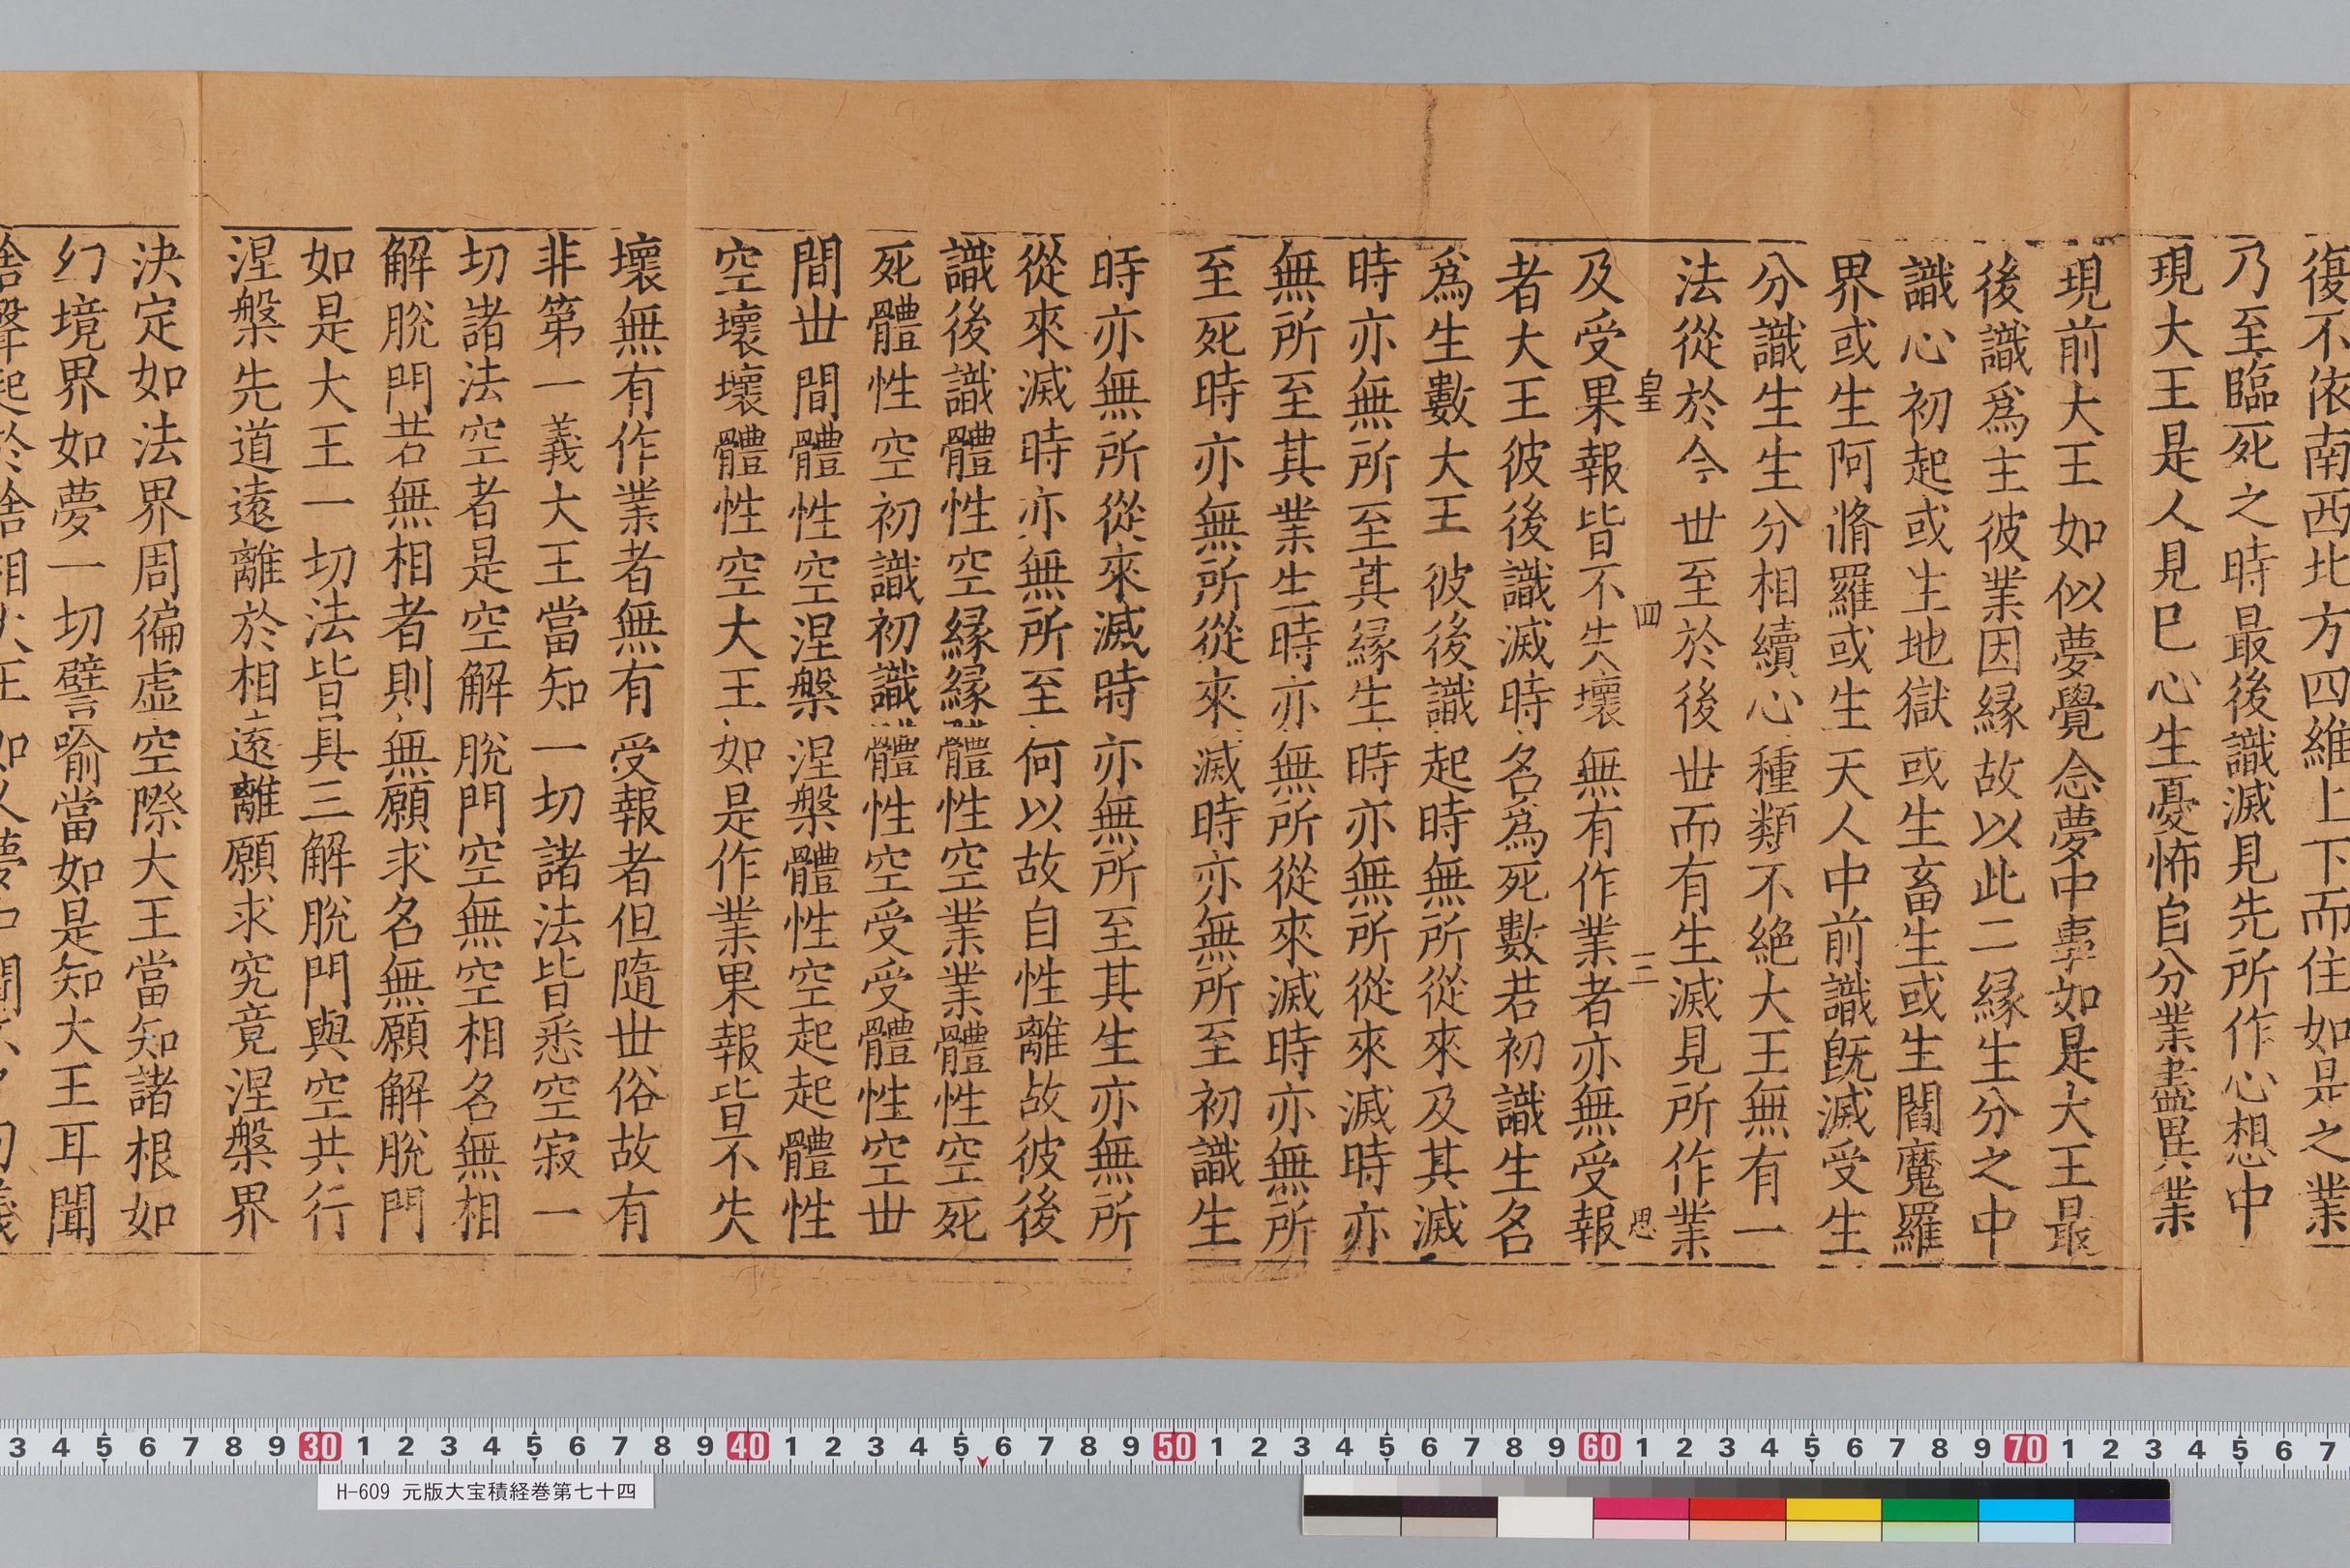 復不依南西北方四維上下而住如是之業
乃至臨死之時最後識滅見先所作心想中
現大王是人見巳心生憂怖自分業盡異業
現前大王如似夢覺念夢中事如是大王最
後識爲主彼業因縁故以此二縁生分之中
識心初起或生地獄或生畜生或生閻魔羅
界或生阿脩羅或生天人中前識旣滅受生
分識生生分相續心種類不絶大王無有一
法從於今世至於後世而有生滅見所作業
皇 四 三 恩
及受果報皆不失壞無有作業者亦無受報
者大王彼後識滅時名爲死數若初識生名
爲生數大王彼後識起時無所從來及其滅
時亦無所至其縁生時亦無所從來滅時亦
無所至其業生時亦無所從來滅時亦無所
至死時亦無所從來滅時亦無所至初識生
時亦無所從來滅時亦無所至其生亦無所
從來滅時亦無所至何以故自性離故彼後
識後識體性空縁縁體性空業業體性空死
死體性空初識初識體性空受受體性空世
間世間體性空涅槃涅槃體性空起起體性
空壞壞體性空大王如是作業果報皆不失
壞無有作業者無有受報者但隨世俗故有
非第一義大王當知一切諸法皆悉空寂一
切諸法空者是空解脫門空無空相名無相
解脫門若無相者則無願求名無願解脫門
如是大王一切法皆具三解脫門與空共行
涅槃先道遠離於相遠離願求究竟涅槃界
決定如法界周徧虛空際大王當知諸根如
幻境界如夢一切譬喻當如是知大王耳聞
3 4 5 6 7 8 9 30 1 2 3 4 5 6 7 8 9 40 1 2 3 4 5 6 7 8 9 50 1 2 3 4 5 6 7 8 9 60 1 2 3 4 5 6 7 8 9 70 1 2 3 4 5 6 7
H-609 元版大宝積経巻第七十四